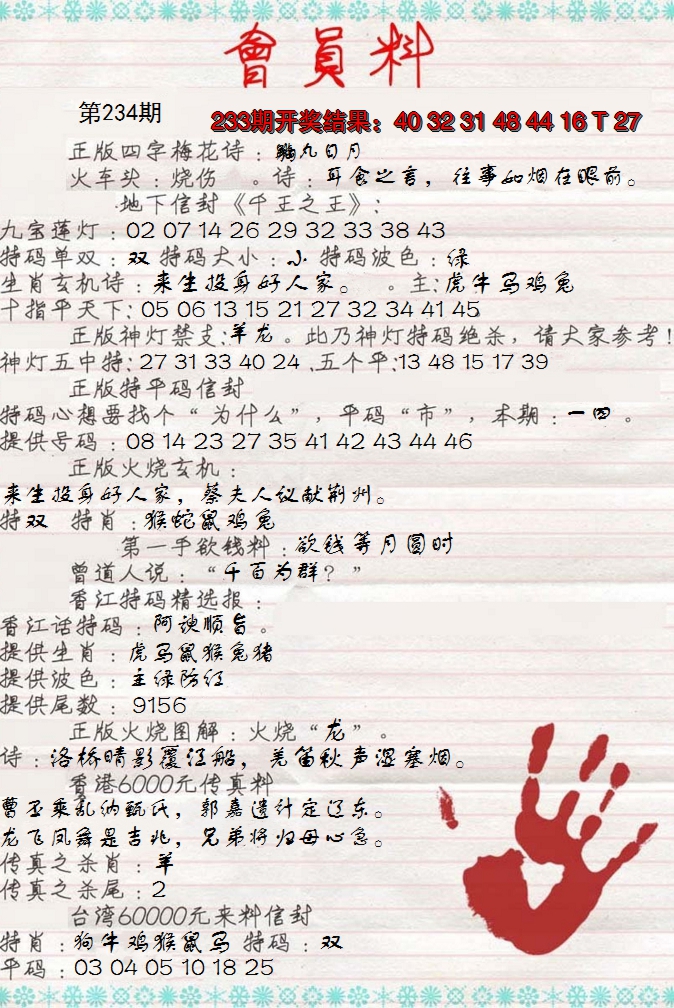 會員料
第234期
233期开奖结果：40 32 31 48 44 16 T 27
正版四字梅花诗：九日月
火车头：烧伤 。诗：耳食之言，往事如烟在眼前。
地下信封《千王之王》：
九宝莲灯：02 07 14 26 29 32 33 38 43
特码单双：双 特码大小：小 特码波色：绿
生肖玄机诗：来生投身好人家。 。主：虎牛马鸡兔
十指平天下：05 06 13 15 21 27 32 34 41 45
正版神灯禁支：羊龙。此乃神灯特码绝杀，请大家参考！
神灯五中特：27 31 33 40 24 .五个平：13 48 15 17 39
正版特平码信封
特码心想要找个“为什么”，平码“市”，本期：一四。
提供号码：08 14 23 27 35 41 42 43 44 46
正版火烧玄机：
来生投身好人家，蔡夫人议献荆州。
特双 特肖：猴蛇鼠鸡兔
第一手欲钱料：欲钱等月圆时
曾道人说：“千百为群？”
香江特码精选报：
香江话特码：阿谀顺旨。
提供生肖：虎马鼠猴兔猪
提供波色：主绿防红
提供尾数：9156
正版火烧图解：火烧“龙”。
诗：洛桥晴影覆江船，羌笛秋声湿塞烟。
香港6000元传真料
曹丕乘乱纳甄氏，郭嘉遗计定辽东。
龙飞凤舞是吉兆，兄弟将归母心急。
传真之杀肖：羊
传真之杀尾：2
台湾60000元来料信封
特肖：狗牛鸡猴鼠马 特码：双
平码：03 04 05 10 18 25